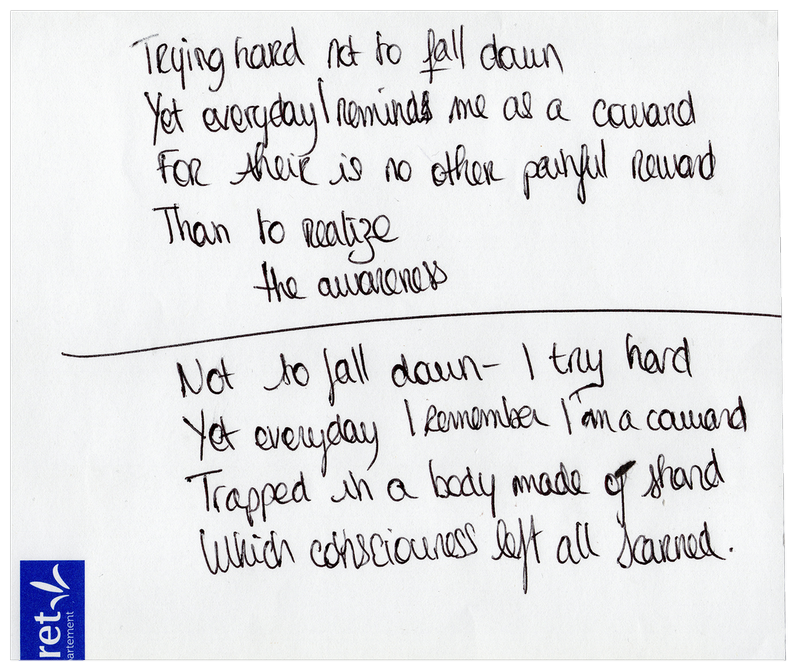 Trying hard not to fall down
Yet everyday I reminds me as a coward
For their is no other painful reward
Than to realize
the awareness
Not to fall down - I try hard
Yet everyday I remember I'm a coward
Trapped in a body made of shard
Which consciouness left all scarred.
ret
artement